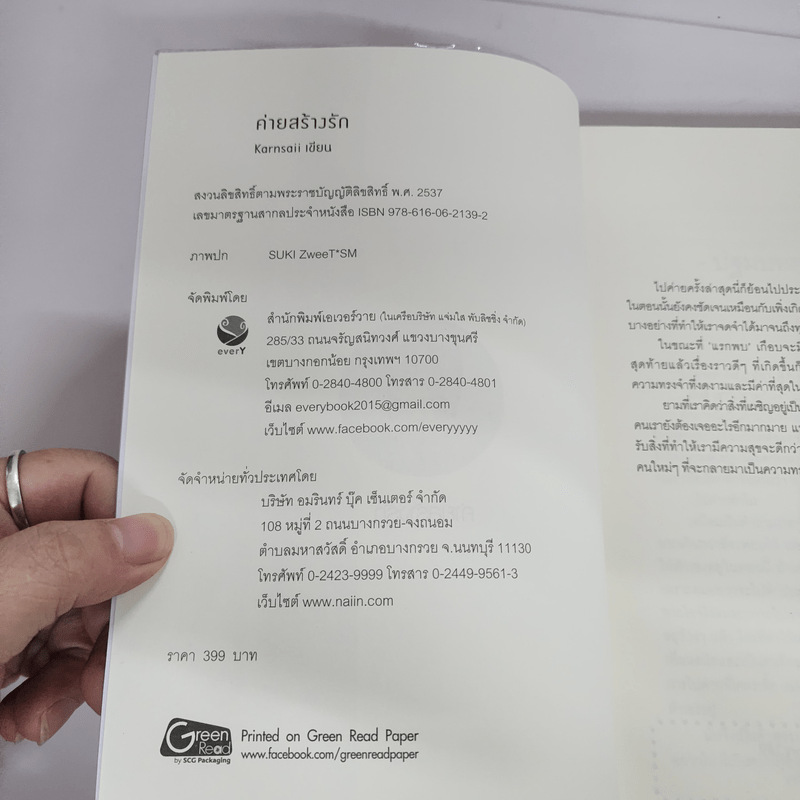 ค่ายสร้างรัก
Karnsaii เขียน
สงวนลิขสิทธิ์ตามพระราชบัญญัติลิขสิทธิ์ พ.ศ. 2537
เลขมาตรฐานสากลประจำหนังสือ ISBN 978-616-06-2139-2
ภาพปก SUKI ZweeT*SM
จัดพิมพ์โดย
everY
สำนักพิมพ์เอเวอร์วาย (ในเครือบริษัท แจ่มใส พับลิชชิ่ง จำกัด)
285/33 ถนนจรัญสนิทวงศ์ แขวงบางขุนศรี
เขตบางกอกน้อย กรุงเทพฯ 10700
โทรศัพท์ 0-2840-4800 โทรสาร 0-2840-4801
อีเมล everybook2015@gmail.com
เว็บไซต์ www.facebook.com/everyyyyy
จัดจำหน่ายทั่วประเทศโดย
บริษัท อมรินทร์ บุ๊ค เซ็นเตอร์ จำกัด
108 หมู่ที่ 2 ถนนบางกรวย-จงถนอม
ตำบลมหาสวัสดิ์ อำเภอบางกรวย จ.นนทบุรี 11130
โทรศัพท์ 0-2423-9999 โทรสาร 0-2449-9561-3
เว็บไซต์ www.naiin.com
ราคา 399 บาท
Green Read
by SCG Packaging
Printed on Green Read Paper
www.facebook.com/greenreadpaper
ไปค่ายครั้งล่าสุดนี่ก็ย้อนไปประ
ในตอนนั้นยังคงชัดเจนเหมือนกับเพิ่งเกิ
บางอย่างที่ทำให้เราจดจำได้มาจนถึง
ในขณะที่ 'แรกพบ' เกือบจะมี
สุดท้ายแล้วเรื่องราวดีๆ ที่เกิดขึ้น
ความทรงจำที่งดงามและมีค่าที่สุดใน
ยามที่เราคิดว่าสิ่งที่เผชิญอยู่เป็
คนเรายังต้องเจออะไรอีกมากมาย
รับสิ่งที่ทำให้เรามีความสุขจะดีกว่า
คนใหม่ๆ ที่จะกลายมาเป็นความทร